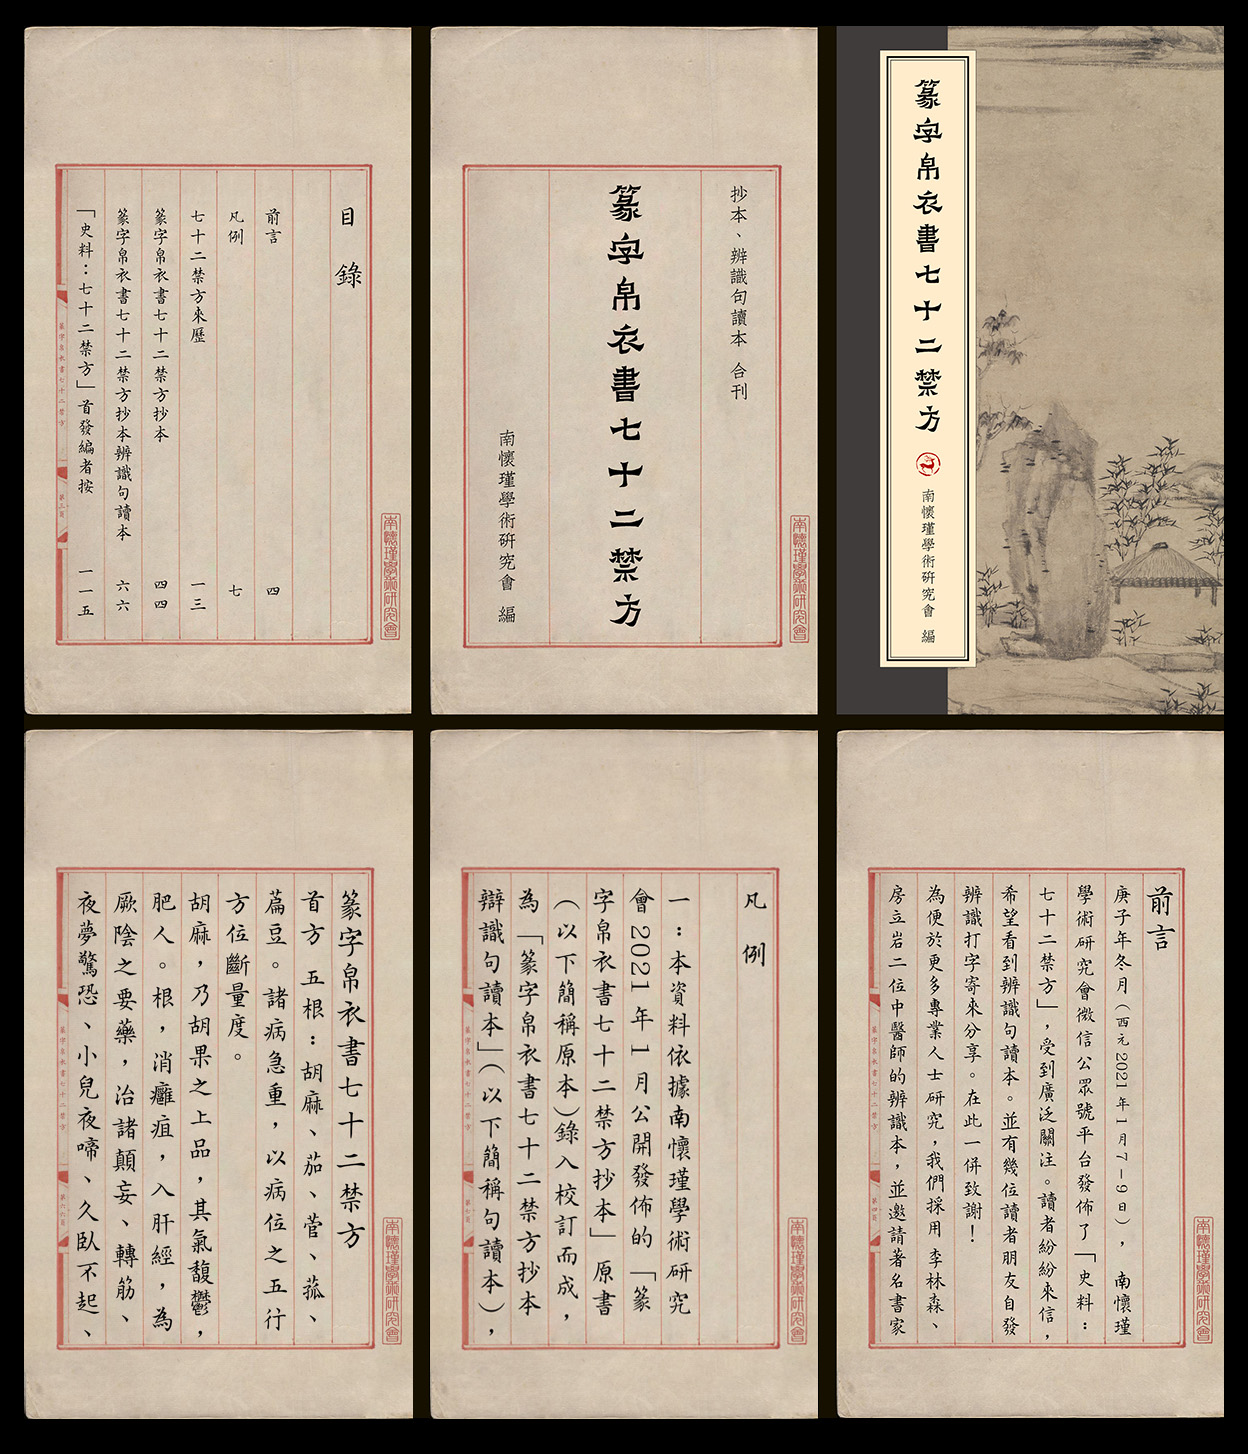 篆字帛衣書七十二禁方
南懷瑾學術研究會 編
抄本、辨識句讀本 合刊
篆字帛衣書七十二禁方
南懷瑾學術研究會 編
南懷瑾學術研究會
目錄
前言 四
凡例 七
七十二禁方來歷 一三
篆字帛衣書七十二禁方抄本 四四
篆字帛衣書七十二禁方抄本辨識句讀本 六六
「史料：七十二禁方」首發編者按 一一五
篆字帛衣書七十二禁方
第三頁
南懷瑾學術研究會
前言
庚子年冬月（西元2021年1月7—9日），南懷瑾
學術研究會微信公眾號平台發佈了「史料：
七十二禁方」，受到廣泛關注。讀者紛紛來信，
希望看到辨識句讀本。並有幾位讀者朋友自發
辨識打字寄來分享。在此一併致謝！
為便於更多專業人士研究，我們採用李林森、
房立岩二位中醫師的辨識本，並邀請著名書家
篆字帛衣書七十二禁方
第四頁
南懷瑾學術研究會
凡例
一：本資料依據南懷瑾學術研究
會2021年1月公開發佈的「篆
字帛衣書七十二禁方抄本」原書
（以下簡稱原本）錄入校訂而成，
為「篆字帛衣書七十二禁方抄本
辯識句讀本」（以下簡稱句讀本），
篆字帛衣書七十二禁方
第七頁
南懷瑾學術研究會
篆字帛衣書七十二禁方
首方 五根：胡麻、茄、菅、菰、
藊豆。諸病急重，以病位之五行
方位斷量度。
胡麻，乃胡果之上品，其氣馥鬱，
肥人。根，消癰疽，入肝經，為
厥陰之要藥，治諸顛妄、轉筋、
夜夢驚恐、小兒夜啼、久臥不起、
篆字帛衣書七十二禁方
第六六頁
南懷瑾學術研究會